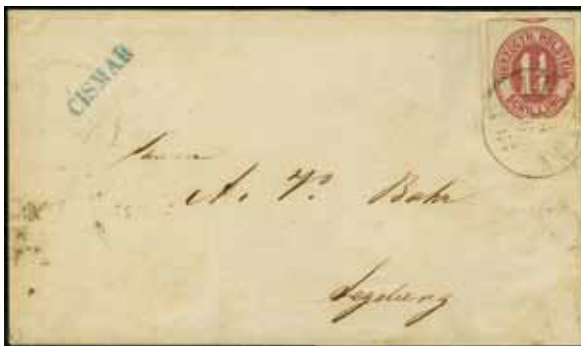 CISMAR
HERZOGTH. HOLSTEIN
1¼
SCHILLING
Herrn
A. P. Bahr
Segeberg